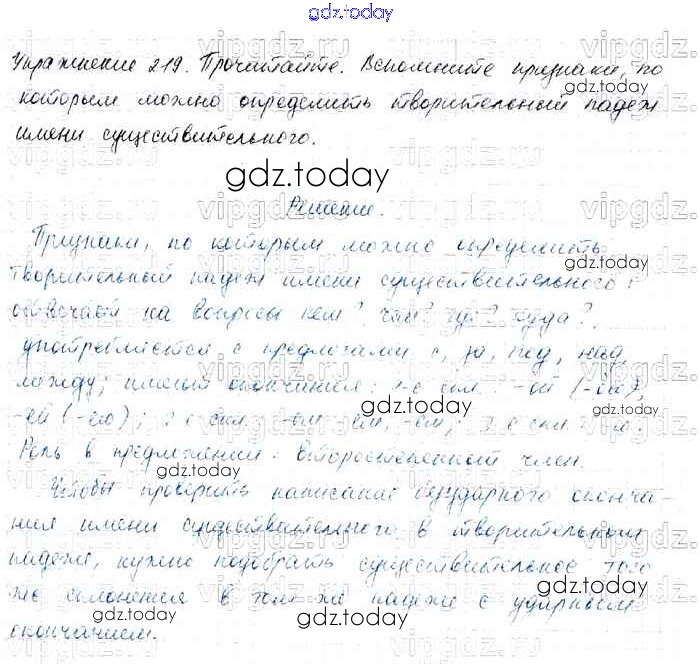 gdz.today
Упражнение 219. Прочитайте. Вспомните признаки, по
которым можно определить творительный падеж
имени существительного.
gdz.today
Решение.
Признаки, по которым можно определить
творительный падеж имени существительного:
отвечает на вопросы кем? чем? где? куда?,
употребляется с предлогами с, за, под, над,
между; имеет окончания: 1-е скл. -ой (-ою),
-ей (-ею); 2-е скл. -ом, -ем, -ём; 3-е скл. -ю.
Роль в предложении: второстепенный член.
Чтобы проверить написание безударного оконча-
ния имени существительного в творительном
падеже, нужно подобрать существительное того
же склонения в том же падеже с ударным
окончанием.